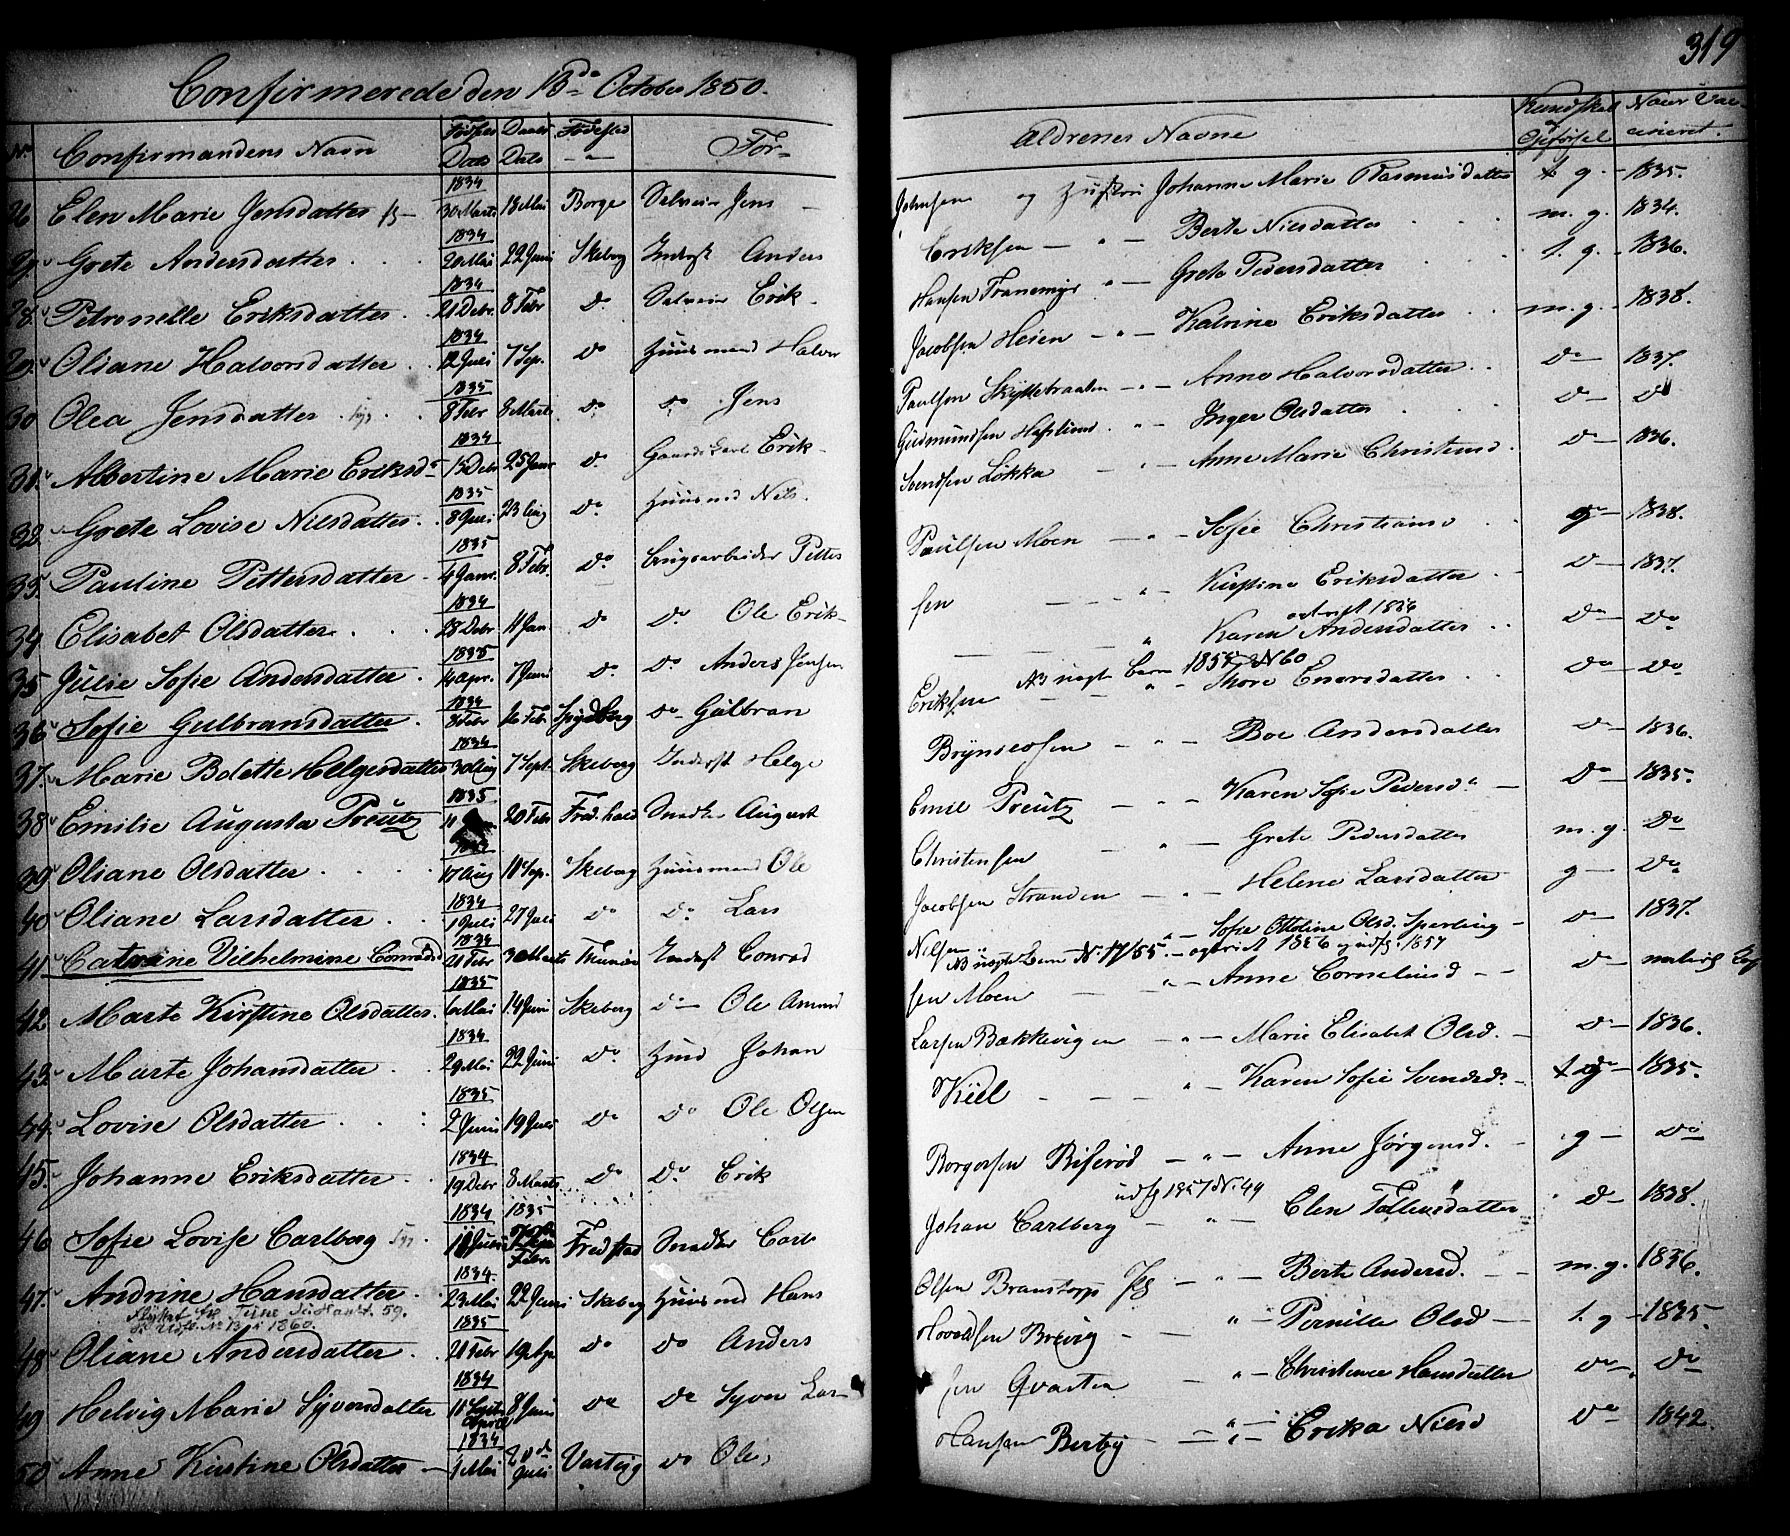 319
Confirmerede den 13de October 1850.
No Confirmandens Navn Fødsels Dato Daabs Dato Fødested For-
ældrenes Navne Kundskab og Opførsel Naar Vaccineret
26 Elen Marie Jensdatter 1834 30 Marts 18 Mai Borge Selveier Jens
Johnsen og Hustru Johanne Marie Rasmusdatter t. g. 1835.
Grete Andersdatter 1834 20 Mai 22 Juni Skeberg Inderst Anders
Eriksen — " — Berte Nilsdatter m. g. 1834.
28 Petronelle Eriksdatter 1834 21 Debr 8 Febr do Selveier Erik
Hansen Tranemyr " — Grete Pedersdatter t. g. — 1836.
29 Oliane Halvorsdatter 1834 12 Juli 7 Sep. do Huusmand Halvor
Jacobsen Heien — " — Katrine Eriksdatter m. g. — 1838.
30 Olea Jensdatter 1835 8 Febr 8 Marts do do Jens
Paulsen Skyttebraaten — " — Anne Halvorsdatter do — 1837.
31 Albertine Marie Eriksd. 1834 13 Debr 25 Janr do Gaardskarl Erik
Gudmundsen Hafslund — " — Inger Olsdatter do — do
32 Grete Lovise Nilsdatter 1835 8 Juli 23 Aug do Huusmd Nils
Svendsen Løkka — " — Anne Marie Christensd. do — 1836.
33 Pauline Pettersdatter 1835 4 Janr. 8 Febr. do Brugsarbeider Petter
Paulsen Moen — " — Sofie Christiansd g — 1838.
34 Elisabet Olsdatter 1834 28 Debr 11 Jan do do Ole Erik-
sen — " — Kirstine Eriksdatter do — 1837.
35 Julie Sofie Andersdatter 1835 14 Apr. 7 Juni do do Anders Jensen
— " — Karen Andersdatter do — do
36 Sofie Gulbransdatter 1834 3 Febr 16 Febr Spydberg do Gulbran
Eriksen — " — Thore Enersdatter do — do
37 Marie Bolette Helgesdatter 1834 30 Aug 7 Sept. Skeberg Inderst Helge
Brynseosen — " — Boe Andersdatter do — 1836.
38 Emilie Augusta Preutz 1835 11 20 Febr Fred.hald Snedker August
Emil Preutz — " — Karen Sofie Pedersd. do — 1835.
39 Oliane Olsdatter 17 Aug 11 Sep. Skeberg Huusmand Ole
Christensen — " — Grete Pedersdatter m. g. do
40 Oliane Larsdatter 1834 1 Juli 27 Juli do do Lars
Jacobsen Stranden — " — Helene Larsdatter g — do
41 Catrine Vilhelmine Conradsd 1834 21 Febr 30 Marts Inderst Conrad
Nilsen " — Sofie Ottoline Olsd. Sperling do — 1837.
42 Marte Kirstine Olsdatter 1835 6 Mai 14 Juni Skeberg do Ole Amund
sen Moen — " — Anne Corneliusd do —
43 Marte Johansdatter 1834 29 Mai 22 Juni do Huusd Johan
Larsen Bakkevigen — " — Marie Elisabet Olsd. do — 1836.
44 Lovise Olsdatter 1835 2 Juni 19 Juli do do Ole Olsen
Kiil — " — Karen Sofie Svendsd. t g — 1835.
45 Johanne Eriksdatter 1834 19 Debr 8 Marts do do Erik
Borgersen Riserød — " — Anne Jørgensd. g — do
46 Sofie Lovise Carlberg 1834 11 Juli 1835 Febr. Fredstad Snedker Carl
Johan Carlberg — " — Elen Tollensdatter do — 1838.
47 Andrine Hansdatter 1834 23 Mai 22 Juni Skeberg Huusmd Hans
Olsen Branstorp — " — Berte Andersd. m. g. 1836.
48 Oliane Andersdatter 1835 21 Febr 19 Apr do do Anders
Hovelsen Brevig — " — Pernille Olsd t. g — 1835.
49 Helvig Marie Syversdatter 1834 11 April 8 Juni do do Syver Lar-
sen Qvasten — " — Christence Hansdatter do — do
50 Anne Kirstine Olsdatter 1834 1 Mai 20de Juli Varteig do Ole
Hansen Berby — " — Erika Nilsd do — 1842.